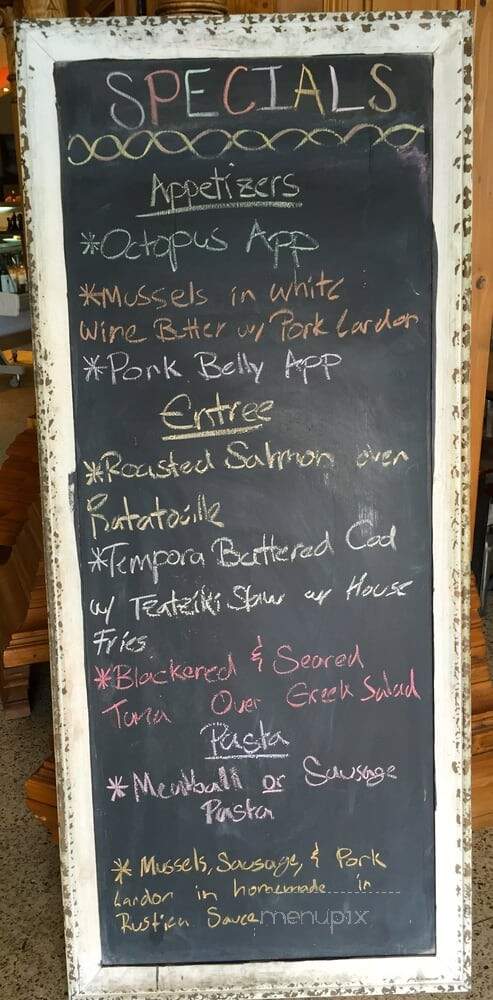 SPECIALS
Appetizers
*Octopus App
*Mussels in white
Wine Butter w/ Pork Lardon
*Pork Belly App
Entree
*Roasted Salmon over
Ratatouille
*Tempora Battered Cod
w/ Tzatziki Slaw w/ House
Fries
*Blackened & Seared
Tuna Over Greek Salad
Pasta
*Meatball or Sausage
Pasta
* Mussels, Sausage, & Pork
Lardon in homemade in
Rustica Sauce
menupix